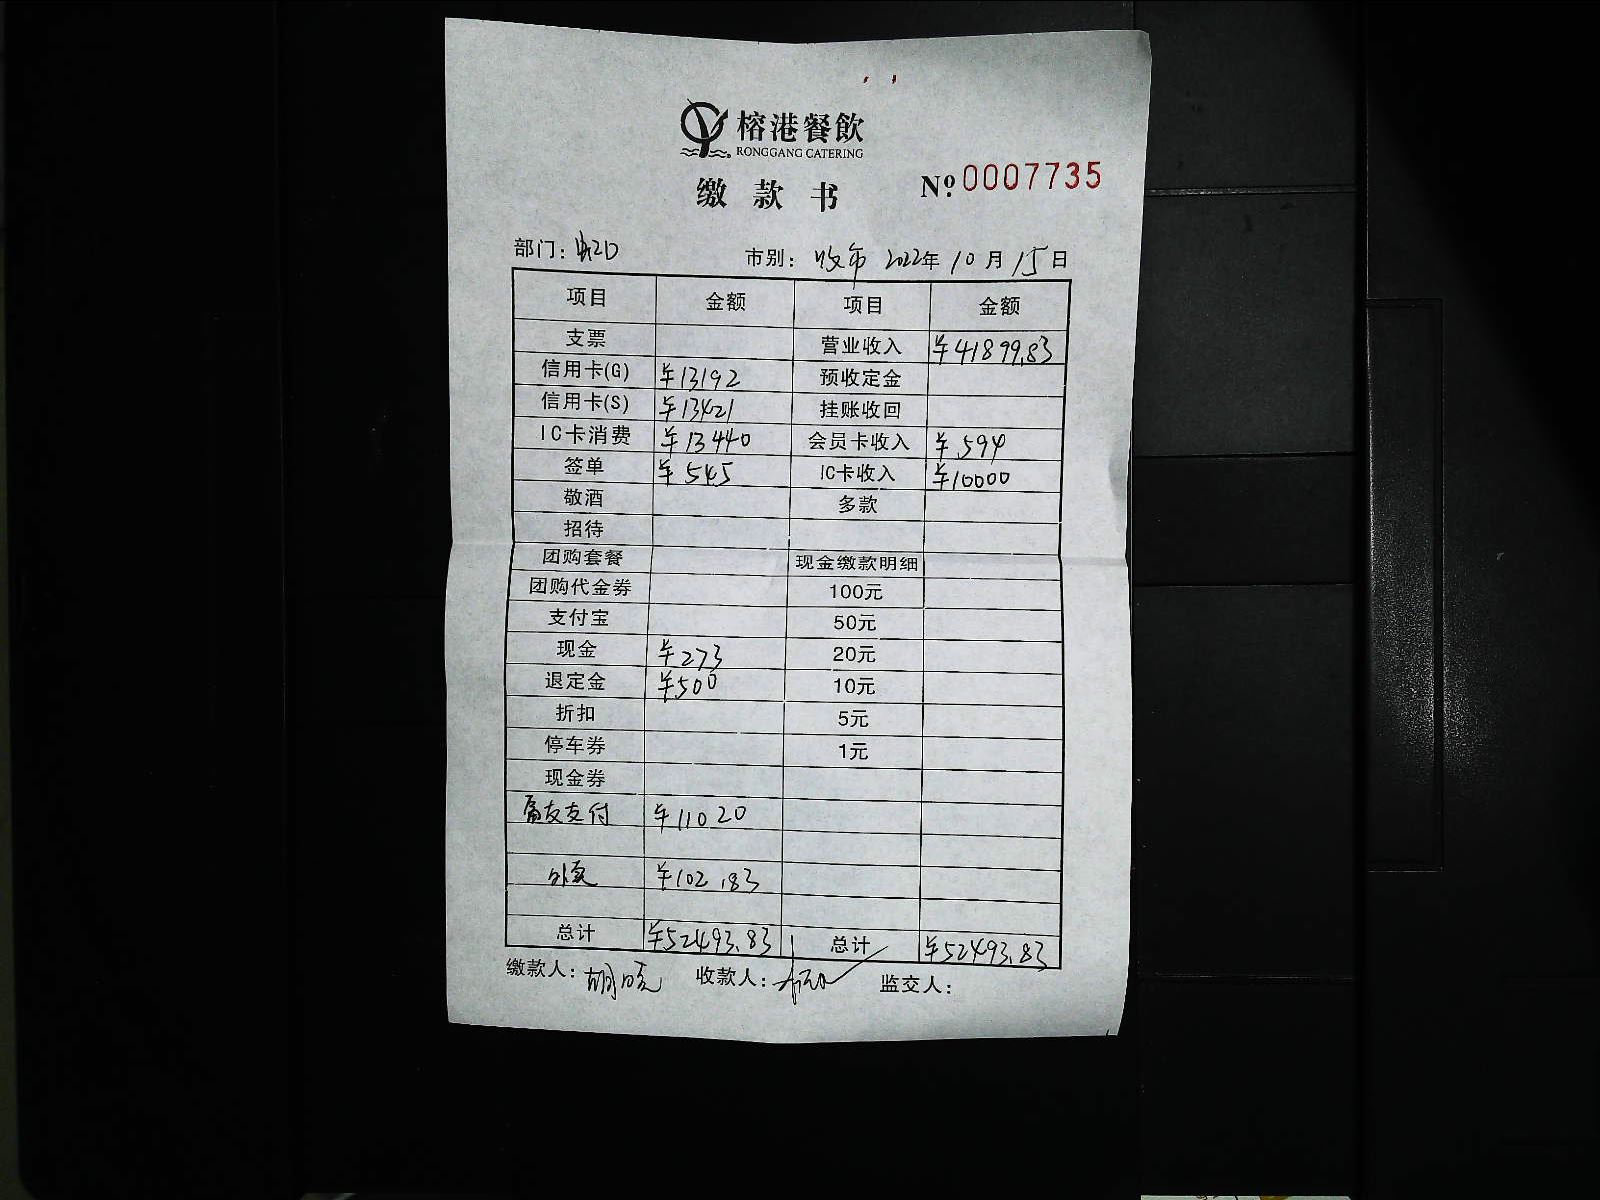 榕港餐飲
RONGGANG CATERING
缴款书 № 0007735
部门: 市别: 收市 2022年 10月 15日
项目 金额 项目 金额
支票 营业收入 ¥41899.83
信用卡(G) ¥13192 预收定金
信用卡(S) ¥13421 挂账收回
IC卡消费 ¥13440 会员卡收入 ¥594
签单 ¥545 IC卡收入 ¥10000
敬酒 多款
招待
团购套餐 现金缴款明细
团购代金券 100元
支付宝 50元
现金 ¥273 20元
退定金 ¥500 10元
折扣 5元
停车券 1元
现金券
友支付 ¥11020
¥102.83
总计 ¥52493.83 总计 ¥52493.83
缴款人: 胡晓 收款人: 监交人: